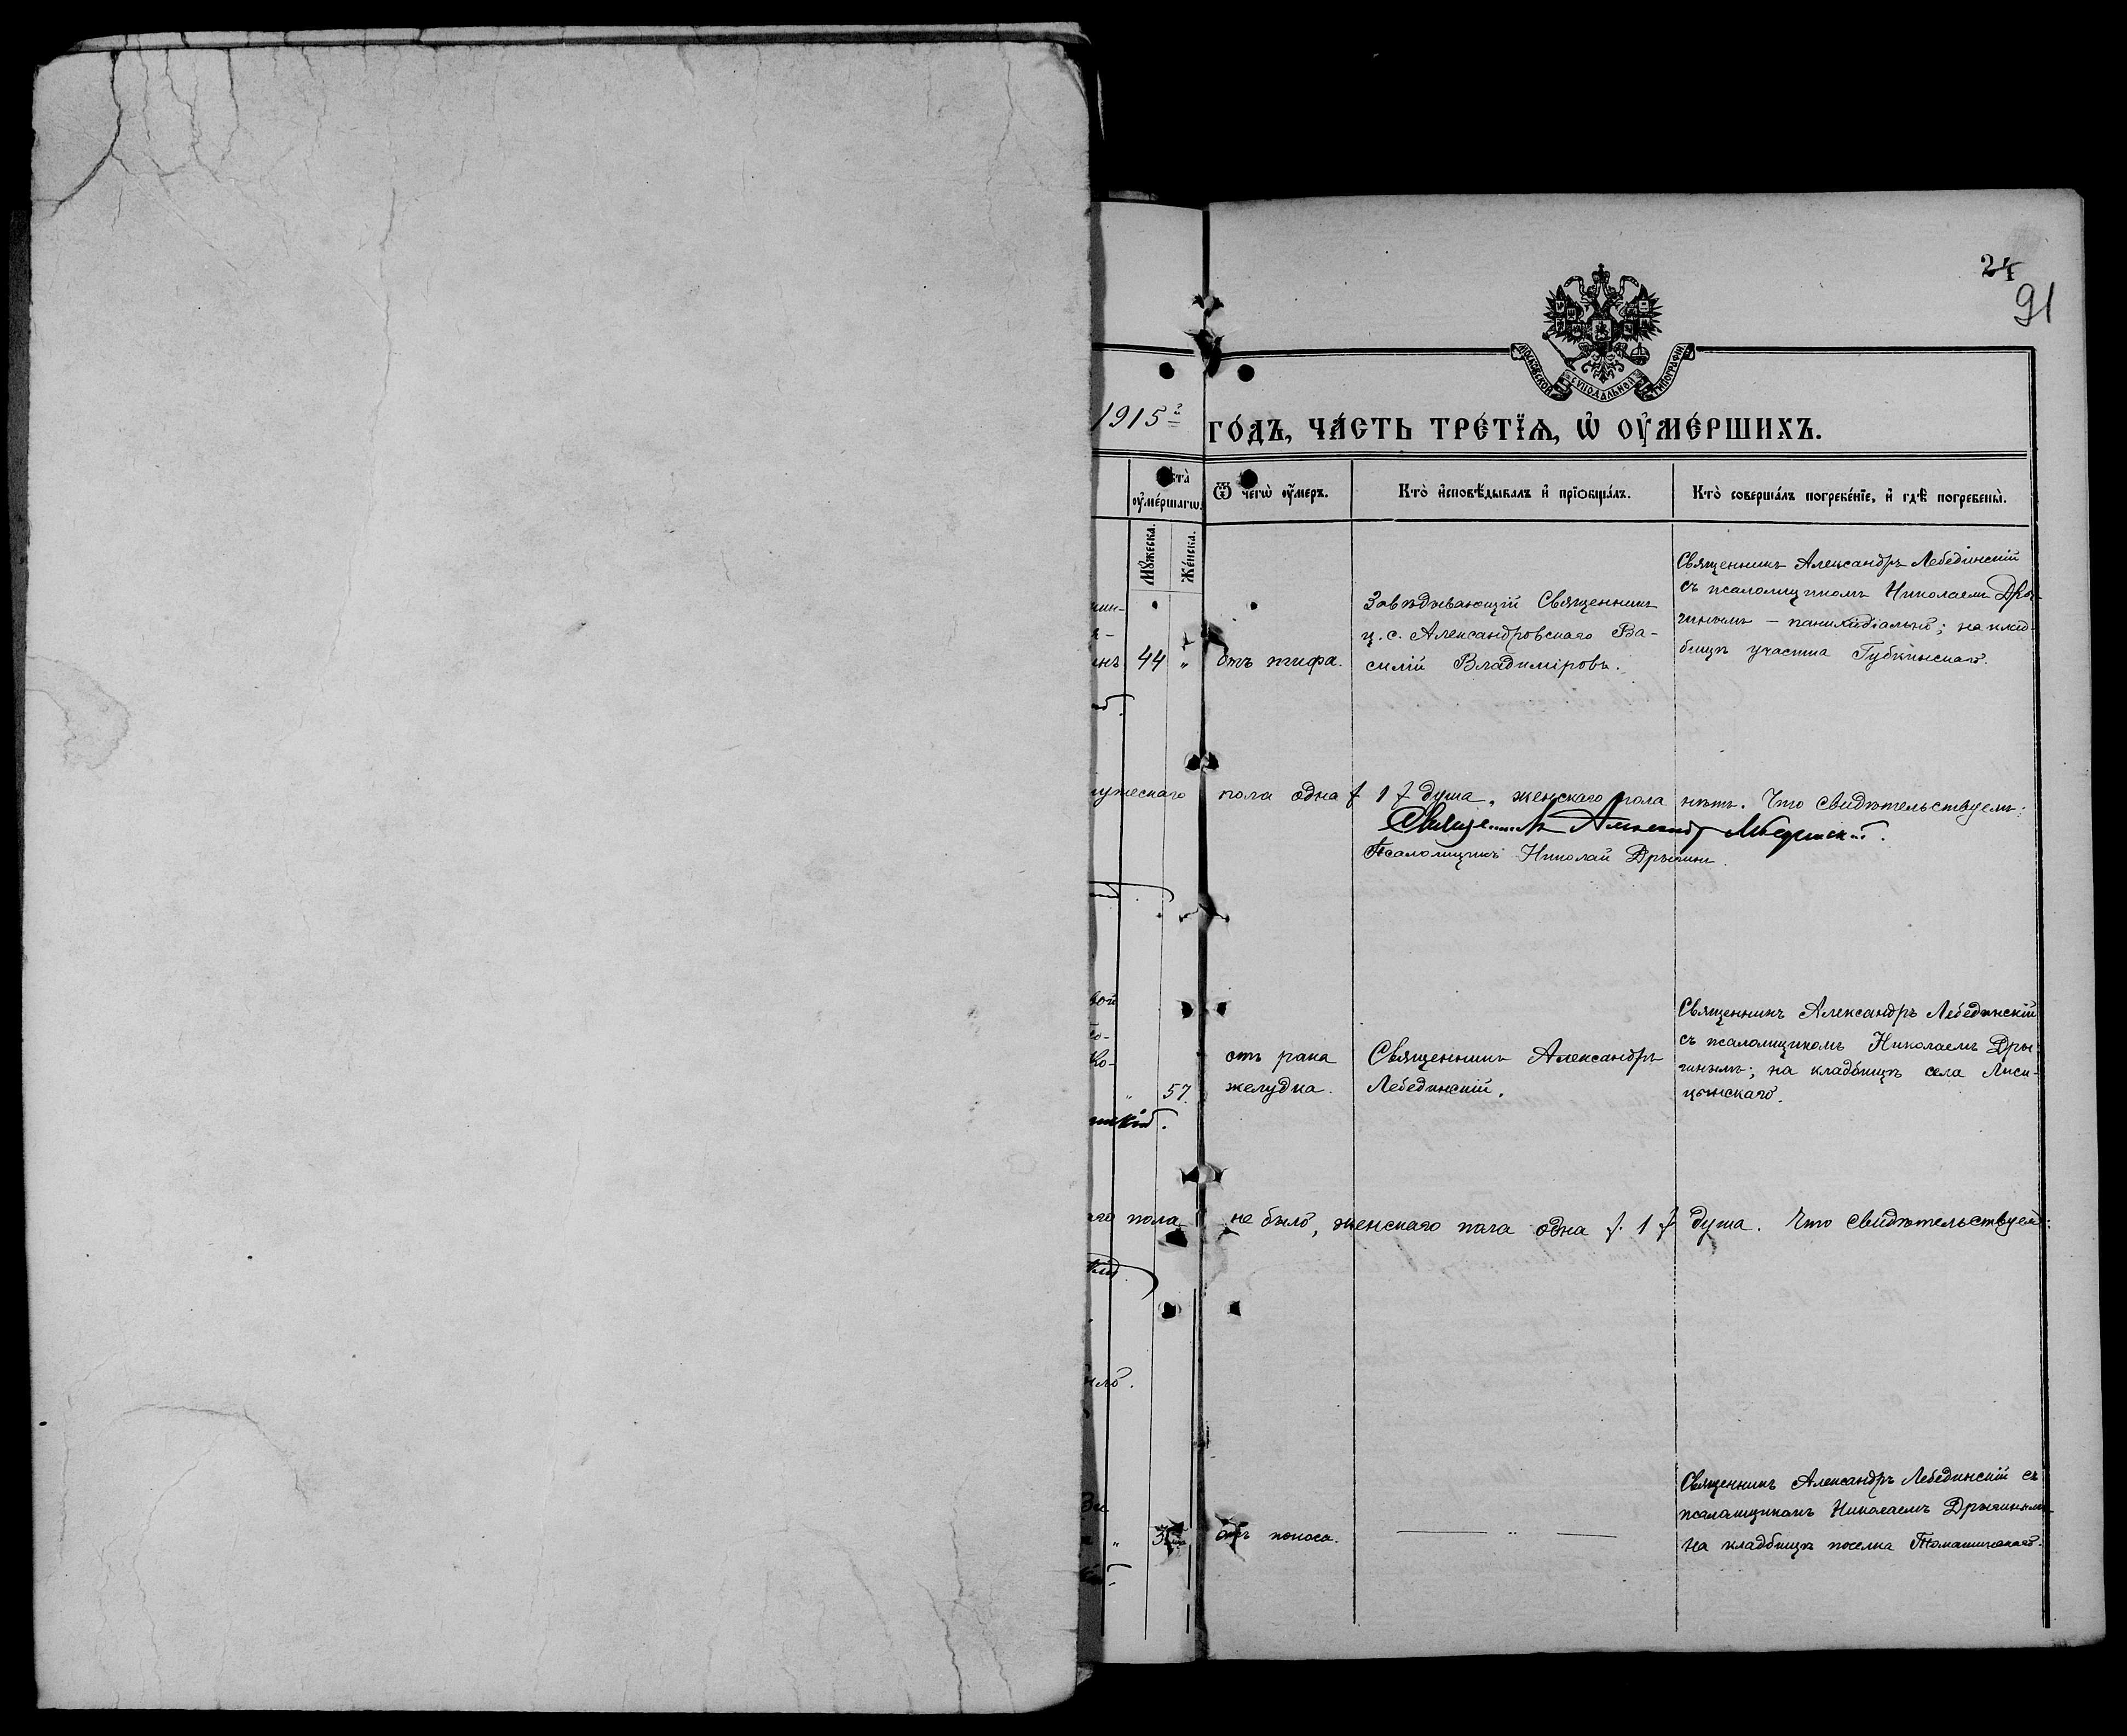 24
91
МОСКОВСКОЙ СѴНОДАЛЬНОЙ ТИПОГРАФІИ
1915 г. ГО́ДЪ, ЧА́СТЬ ТРЕ́ТЇѦ, Ѡ҆ ОУ҆МЕ́РШИХЪ.
оу҆ме́ршагѡ.
Мꙋ́жеска.
Же́нска.
Ѿ чегѡ̀ оу҆́меръ.
Кто̀ и҆сповѣ́дывалъ и҆ прїѡбща́лъ.
Кто̀ соверша́лъ погребе́нїе, и҆ гдѣ̀ погребены̀.
44 „
отъ тифа.
Завѣдывающій Священникъ
ц. с. Александровскаго Ва-
силій Владиміровъ.
Священникъ Александръ Лебединскій
съ псаломщикомъ Николаемъ Дры-
гинымъ – панихидіально; на клад-
бищѣ участка Губкинскаго.
мужескаго пола одна / 1 / душа, женскаго пола нѣтъ. Что свидѣтельствуемъ:
Священникъ Александръ Лебединскій.
Псаломщикъ Николай Дрыгинъ.
„ 57.
отъ рака
желудка.
Священникъ Александръ
Лебединскій.
Священникъ Александръ Лебединскій
съ псаломщикомъ Николаемъ Дры-
гинымъ; на кладбищѣ села Лиси-
цынскаго.
пола не было, женскаго пола одна / 1 / душа. Что свидѣтельствуемъ:
отъ поноса.
— „ —
Священникъ Александръ Лебединскій съ
псаломщикомъ Николаемъ Дрыгинымъ
на кладбищѣ поселка